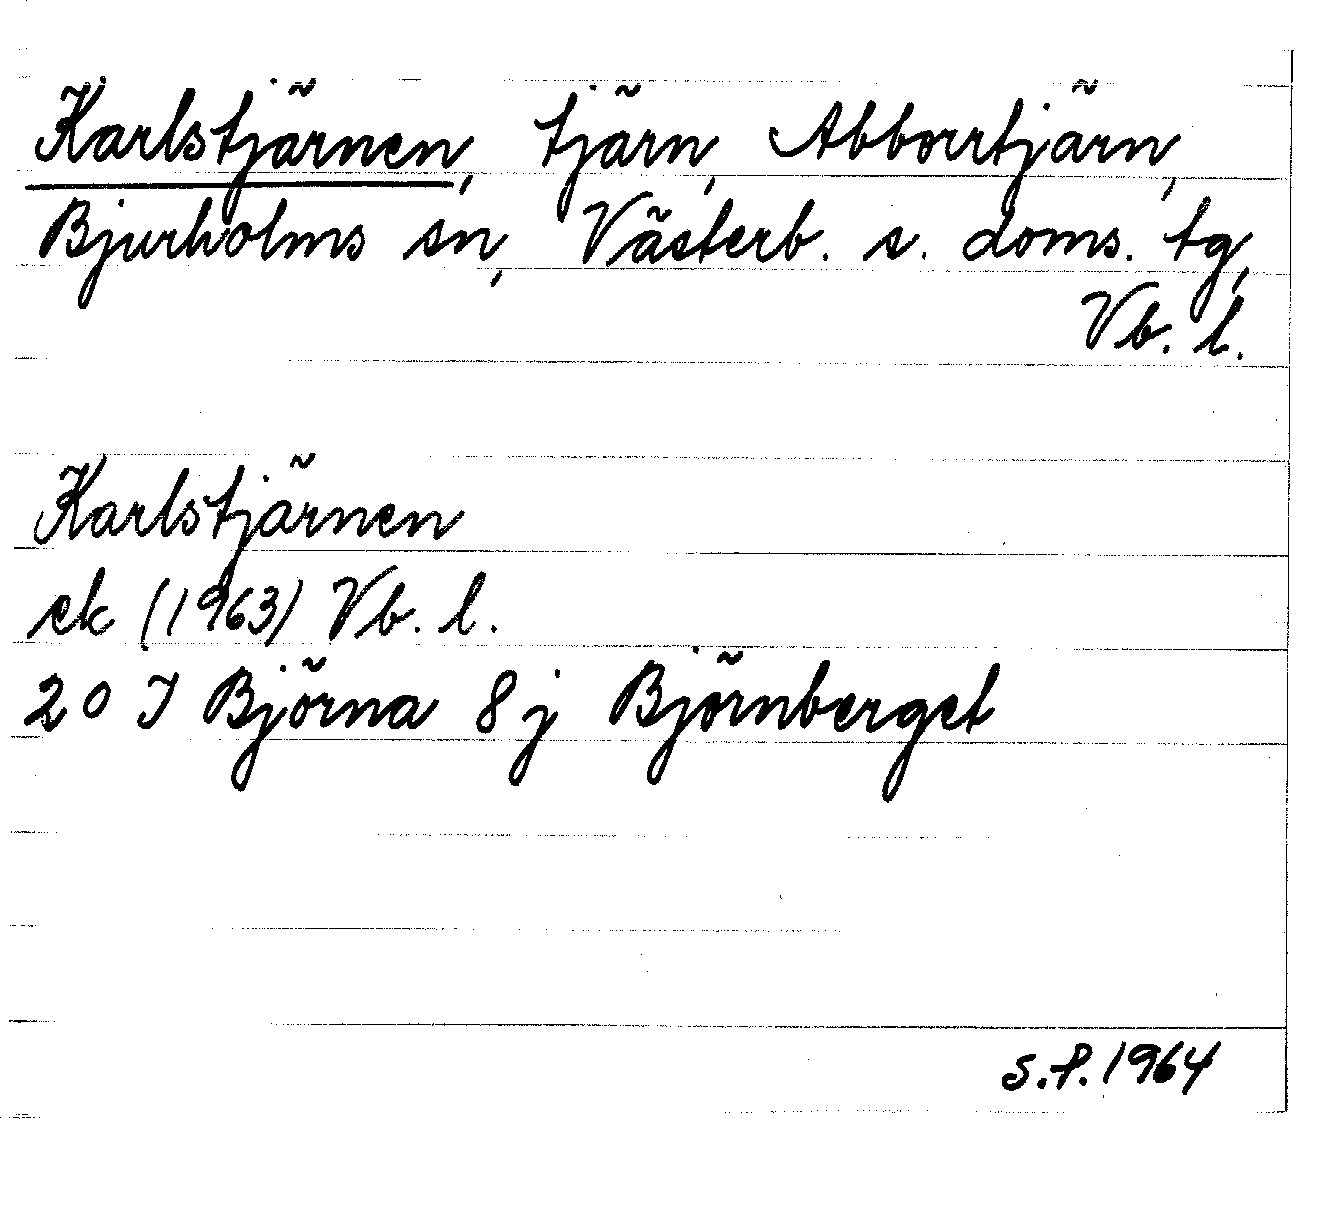 Karlstjärnen, tjärn, Abborrtjärn,
Bjurholms sn, Västerb. s. doms. tg,
Vb. l.
Karlstjärnen
ek (1963) Vb. l.
20 J Björna 8j Björnberget
S.P. 1964